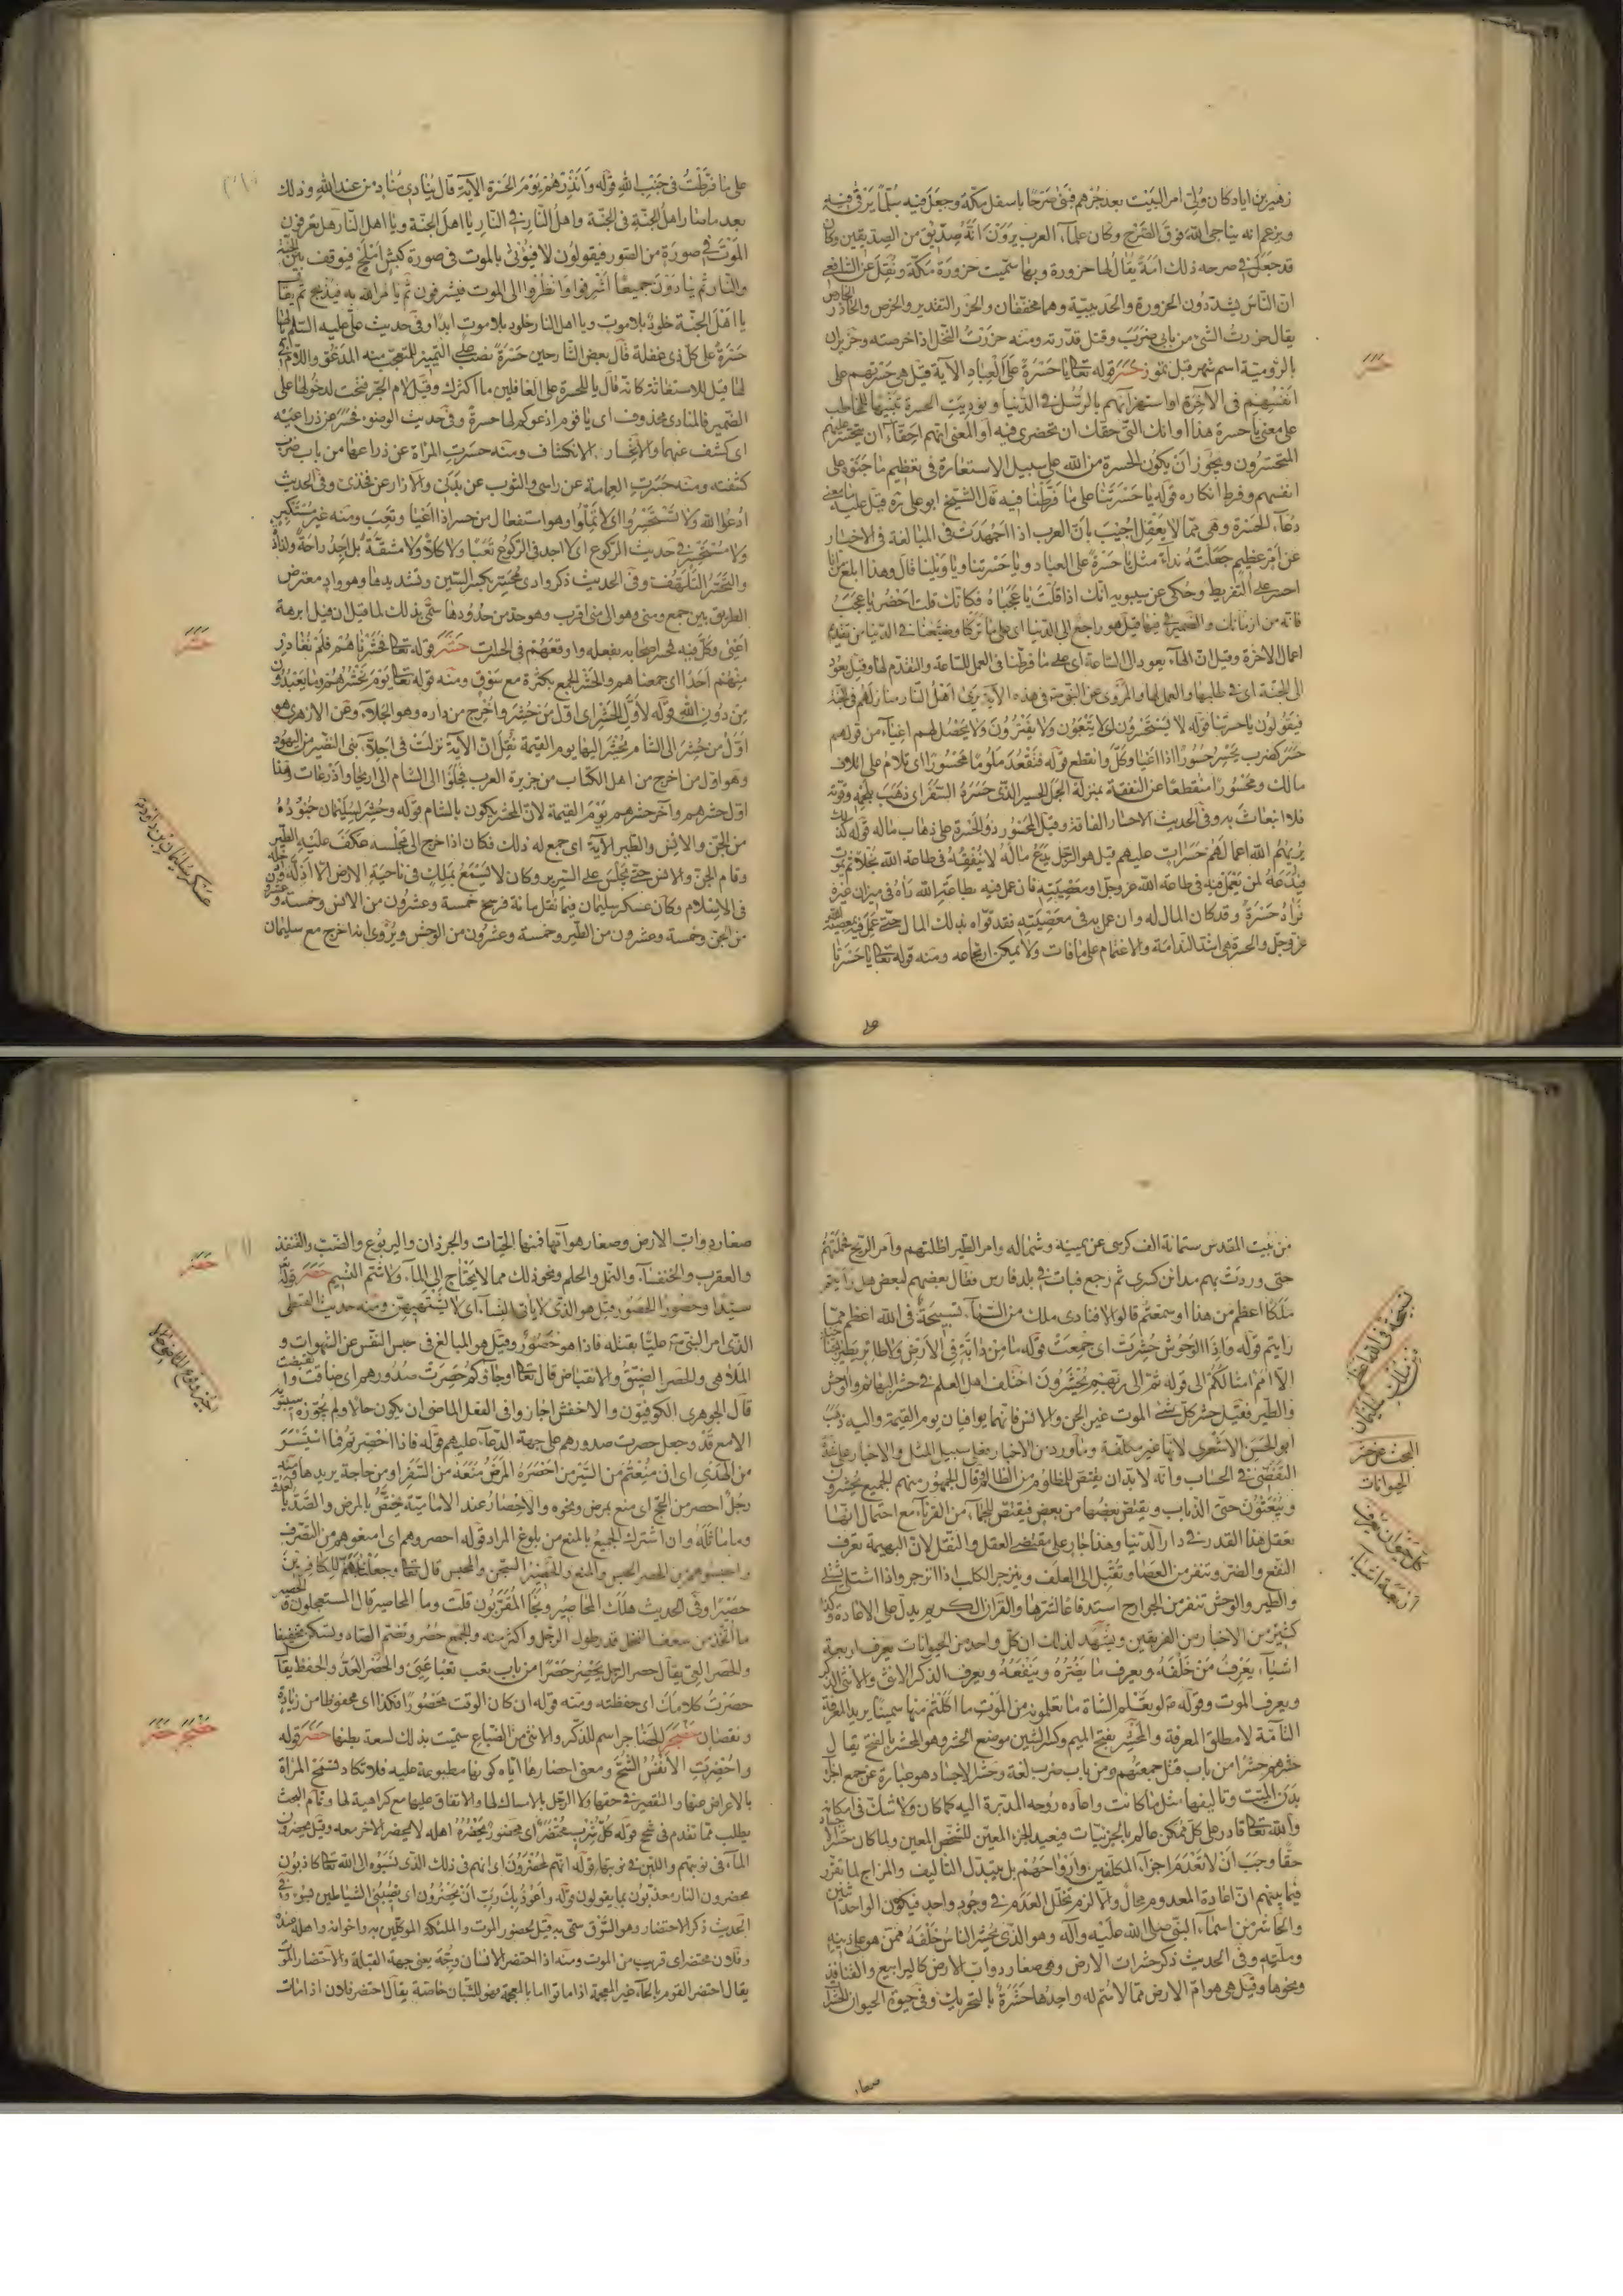 زهير بن اياد كان ولى امر البيت بعد جرهم فبنى صرحا باسفل مكة وجعل فيه سلما يرقى فيه
ويزعم انه يناجى الله فوق الصرح وكان علماء العرب يرون انه صديق من الصديقين وكان
قد جعل فى صرحه ذلك امة يقال لها حزورة وبها سميت حزورة مكة ونقل عن الشافعى
ان الناس يشددون الحزورة والحديبية وهما مخففتان والحزر التقدير والخرص والحازر الخارص
يقال حزرت الشئ من بابى ضرب وقتل قدرته ومنه حزرت النخل اذا خرصته وحزيران
بالرومية اسم شهر قبل تموز حسر قوله تعالى يا حسرة على العباد الآية قيل هى حسرتهم على
انفسهم فى الآخرة او استهزائهم بالرسل فى الدنيا ونوديت الحسرة تنبيها للمخاطب
على معنى يا حسرة هذا اوانك التى حقك ان تحضرى فيه او المعنى انهم احقاء ان يتحسر عليهم
المتحسرون ويجوز ان يكون الحسرة من الله على سبيل الاستعارة فى تعظيم ما جنوه على
انفسهم وفرط انكاره قوله يا حسرتنا على ما فرطنا فيها قال الشيخ ابو على ره قيل على ما معنى
دعاء الحسرة وهى مما لا يعقل اجيب بان العرب اذا اجتهدت فى المبالغة فى الاخبار
عن امر عظيم جعلته نداء مثل يا حسرة على العباد ويا حسرتنا ويا ويلنا قال وهذا ابلغ من انا
احسر على التفريط وحكى عن سيبويه انك اذا قلت يا عجباه فكانك قلت احضر يا عجب
فانه من ازمانك والضمير فى فيها قيل هو راجع الى الدنيا اى على ما تركنا وضيعنا فى الدنيا من تقديم
اعمال الاخرة وقيل ان الهاء يعود الى الساعة اى على ما فرطنا فى العمل للساعة والتقدم لها وقيل يعود
الى الجنة اى فى طلبها والعمل لها والمروى عن النبى ص فى هذه الآية يرى اهل النار منازلهم فى الجنة
فيقولون يا حسرتنا قوله لا يستحسرون اى لا يتعبون ولا يفترون ولا يحصل لهم اعياء من قولهم
حسر كضرب يحسر حسورا اذا اعيا وكل وانقطع قوله فتقعد ملوما محسورا اى تلام على اتلاف
مالك ومحسورا منقطعا عن النفقة بمنزلة الجمل الحسير الذى حسره السفر اى ذهب بلحمه وقوته
فلا انبعاث به وفى الحديث الاحسار الفاقة وقيل المحسور ذو الحسرة على ذهاب ماله قوله كذلك
يريهم الله اعمالهم حسرات عليهم قيل هو الرجل يدع ماله لا ينفقه فى طاعة الله بخلا ثم يموت
فيدعه لمن يعمل فيه فى طاعة الله عز وجل او معصيته فان عمل فيه بطاعة الله رآه فى ميزان غيره
فزاده حسرة وقد كان المال له وان عمل به فى معصيته فقد قواه بذلك المال حتى عمل فيه بمعصية الله
عز وجل والحسرة هى اشد الندامة والاغتمام على ما فات ولا يمكن ارتجاعه ومنه قوله تعالى يا حسرتا
على
حسر
على ما فرطت فى جنب الله قوله وانذرهم يوم الحسرة الآية قال ينادى مناد من عند الله وذلك
بعد ما صار اهل الجنة فى الجنة واهل النار فى النار يا اهل الجنة ويا اهل النار هل تعرفون
الموت فى صورة من الصور فيقولون لا فيؤتى بالموت فى صورة كبش املح فيوقف بين الجنة
والنار ثم ينادون جميعا اشرفوا وانظروا الى الموت فيشرفون ثم يامر الله به فيذبح ثم يقال
يا اهل الجنة خلود بلا موت ويا اهل النار خلود بلا موت ابدا وفى حديث على عليه السلم يا لها
حسرة على كل ذى غفلة قال بعض الشارحين حسرة نصب على التمييز للمتعجب منه المدعو واللام فى
لها قيل للاستغاثة كانه قال يا للحسرة على الغافلين ما اكثرك وقيل لام الجر فتحت لدخولها على
الضمير فالمنادى محذوف اى يا قوم ادعوكم لها حسرة وفى حديث الوضوء فحسر عن ذراعيه
اى كشف عنهما والانحسار الانكشاف ومنه حسرت المراة عن ذراعها من باب ضرب
كشفته ومنه حسرت العمامة عن راسى والثوب عن بدنى والازار عن فخذى وفى الحديث
ادعوا الله ولا تستحسروا اى لا تملوا وهو استفعال من حسر اذا اعيا وتعب ومنه غير مستكبر
ولا مستحسر فى حديث الركوع اى لا اجد فى الركوع تعبا ولا كلا ولا مشقة بل اجد راحة ولذاذة
والتحسر التلهف وفى الحديث ذكر وادى محسر بكسر السين وتشديدها وهو واد معترض
الطريق بين جمع ومنى وهو الى منى اقرب وهو حد من حدودها سمى بذلك لما قيل ان فيل ابرهة
اعيى وكل فيه فحسر اصحابه بفعله واوقعهم فى الحسرات حشر قوله تعالى وحشرناهم فلم نغادر
منهم احدا اى جمعناهم والحشر الجمع بكثرة مع سوق ومنه قوله تعالى يوم نحشرهم وما يعبدون
من دون الله قوله لاول الحشر اى اول من حشر واخرج من داره وهو الجلاء وعن الازهرى هو
اول من حشر الى الشام ثم يحشر اليها يوم القيمة نقل ان الآية نزلت فى اجلاء بنى النضير من اليهود
وهو اول من اخرج من اهل الكتاب من جزيرة العرب فجلوا الى الشام الى اريحا واذرعات وهذا
اول حشرهم وآخر حشرهم يوم القيمة لان المحشر يكون بالشام قوله وحشر لسليمان جنوده
من الجن والانس والطير الآية اى جمع له ذلك فكان اذا خرج الى مجلسه عكف عليه الطير
وقام الجن والانس حتى يجلس على السرير وكان لا يسمع بملك فى ناحية الارض الا اذله وادخله
فى الاسلام وكان عسكر سليمان فيما نقل مائة فرسخ خمسة وعشرون من الانس وخمسة وعشرون
من الجن وخمسة وعشرون من الطير وخمسة وعشرون من الوحش ويروى انه اخرج مع سليمان
حشر
عسكر سليمان بن داود
من بيت المقدس ستمائة الف كرسى عن يمينه وشماله وامر الطير اظلتهم وامر الريح فحملتهم
حتى وردت بهم مدائن كسرى ثم رجع فبات فى بلد فارس فقال بعضهم لبعض هل رايتم
ملكا اعظم من هذا او سمعتم قالوا لا فنادى ملك من السماء تسبيحة فى الله اعظم مما
رايتم قوله واذا الوحوش حشرت اى جمعت قوله ما من دابة فى الارض ولا طائر يطير بجناحيه
الا امم امثالكم الى قوله ثم الى ربهم يحشرون اختلف اهل العلم فى حشر البهائم والوحش
والطير فقيل حشر كل شئ الموت غير الجن والانس فانهما يوافيان يوم القيمة واليه ذهب
ابو الحسن الاشعرى لانها غير مكلفة وما ورد من الاخبار فعلى سبيل المثل والاخبار على شدة
التقصى فى الحساب وانه لا بد ان يقتص للمظلوم من الظالم وقال الجمهور منهم الجميع يحشرون
ويبعثون حتى الذباب ويقتص بعضها من بعض فيقتص للجماء من القرناء مع احتمال انها
تعقل هذا القدر فى دار الدنيا وهذا جار على مقتضى العقل والنقل لان البهيمة تعرف
النفع والضر وتنفر من العصا وتقبل الى العلف وينزجر الكلب اذا انزجر واذا اشتلى
والطير والوحش تنفر من الجوارح استدفاعا لشرها والقرآن الكريم يدل على الاعادة وكذا
كثير من الاخبار من الفريقين ويشهد لذلك ان كل واحد من الحيوانات يعرف اربعة
اشياء يعرف من خلقه ويعرف ما يضره وينفعه ويعرف الذكر الانثى والانثى الذكر
ويعرف الموت وقوله ص لو تعلم الشاة ما تعلمونه من الموت ما اكلتم منها سمينا يريد المعرفة
التامة لا مطلق المعرفة والمحشر بفتح الميم وكسر الشين موضع الحشر وهو المحشر بالفتح يقال
حشرهم حشرا من باب قتل جمعتهم ومن باب ضرب لغة وحشر الاجساد هو عبارة عن جمع اجزاء
بدن الميت وتاليفها مثل ما كانت واعاده روحه المدبرة اليه كما كان ولا شك فى امكانه
والله تعالى قادر على كل ممكن عالم بالجزئيات فيعيد الجزء المعين للشخص المعين ولما كان حشر الاجساد
حقا وجب ان لا تعدم اجزاء المكلفين وارواحهم بل يتبدل التاليف والمزاج لما تقرر
فيما بينهم ان اعادة المعدوم محال والا لزم تخلل العدم فى وجود واحد فيكون الواحد اثنين
والحاشر من اسماء النبى صلى الله عليه وآله وهو الذى يحشر الناس خلفه فمن هو على دينه
وملته وفى الحديث ذكر حشرات الارض وهى صغار دواب الارض كاليرابيع والقنافذ
ونحوها وقيل هى هوام الارض مما لا سم له واحدها حشرة بالتحريك وفى حيوة الحيوان الحشرات
صغار
تسبيحة فى الله اعظم
سليمان
البحث عن حشر
الحيوانات
كل حيوان يعرف
اربعة اشياء
صغار دواب الارض وصغار هوامها فمنها الحيات والجرذان واليربوع والضب والقنفذ
والعقرب والخنفساء والنمل والحلم ونحو ذلك مما لا يحتاج الى الماء ولا شم النسيم حصر قوله
سيدا وحصورا الحصور قيل هو الذى لا ياتى النساء اى لا يشتهيهن ومنه حديث القبطى
الذى امر النبى ص عليا بقتله فاذا هو حصور وقيل هو المبالغ فى حبس النفس عن الشهوات و
الملاهى والحصر الضيق والانقباض قال تعالى او جاؤكم حصرت صدورهم اى ضاقت وانقبضت
قال الجوهرى الكوفيون والاخفش اجازوا فى الفعل الماضى ان يكون حالا ولم يجوزه سيبويه
الا مع قد وجعل حصرت صدورهم على جهة الدعاء عليهم قوله فاذا احصرتم فما استيسر
من الهدى اى ان منعتم من السير من احصره المرض منعه من السفر او من حاجة يريدها ومنه
رجل احصر من الحج اى منع بمرض ونحوه والاحصار عند الامامية يختص بالمرض والصد بالعدو
وما ماثله وان اشترك الجميع بالمنع من بلوغ المراد قوله احصروهم اى امنعوهم من التصرف
واحبسوهم من الحصر الحبس والمنع والحصير السجن والمحبس قال تعالى وجعلنا جهنم للكافرين
حصيرا وفى الحديث هلك المحاصير ونجا المقربون قلت وما المحاصير قال المستعجلون والحصير
ما اتخذ من سعف النخل قدر طول الرجل واكثر منه والجمع حصر وتضم الصاد وتسكن تخفيفا
والحصر العى يقال حصر الرجل يحصر حصرا من باب تعب تعبا عيى والحصر العد والحفظ يقال
حصرت كلامك اى حفظته ومنه قوله ان كان الوقت محصورا فكذا اى محفوظا من زيادة
ونقصان حضجر الحضاجر اسم للذكر والانثى من الضباع سميت بذلك لسعة بطنها حضر قوله
واحضرت الانفس الشح ومعنى احضارها اياه كونها مطبوعة عليه فلا تكاد تسمح المراة
بالاعراض عنها والتقصير فى حقها ولا الرجل بالامساك لها والانفاق عليها مع كراهية لها وتمام البحث
يطلب مما تقدم فى شح قوله كل شرب محتضر اى محضور يحضره اهله لا يحضر الآخر معه وقيل يحضرون
الماء فى نوبتهم واللبن فى نوبتها قوله انهم لمحضرون اى انهم فى ذلك الذى نسبوه الى الله تعالى كاذبون
محضرون النار معذبون بما يقولون قوله واعوذ بك رب ان يحضرون اى يصيبنى الشياطين بسوء وفى
الحديث ذكر الاحتضار وهو السوق سمى به قيل لحضور الموت والملئكة الموكلين به واخوانه واهله عنده
وفلان محتضر اى قريب من الموت ومنه اذا احتضر الانسان وجه يعنى جهة القبلة والاحتضار الموت
يقال احتضر القوم بالحاء غير المعجمة اذا ماتوا اما بالمعجمة فهو للشبان خاصة يقال اختضر فلان اذا مات
حصر
حضجر حضر